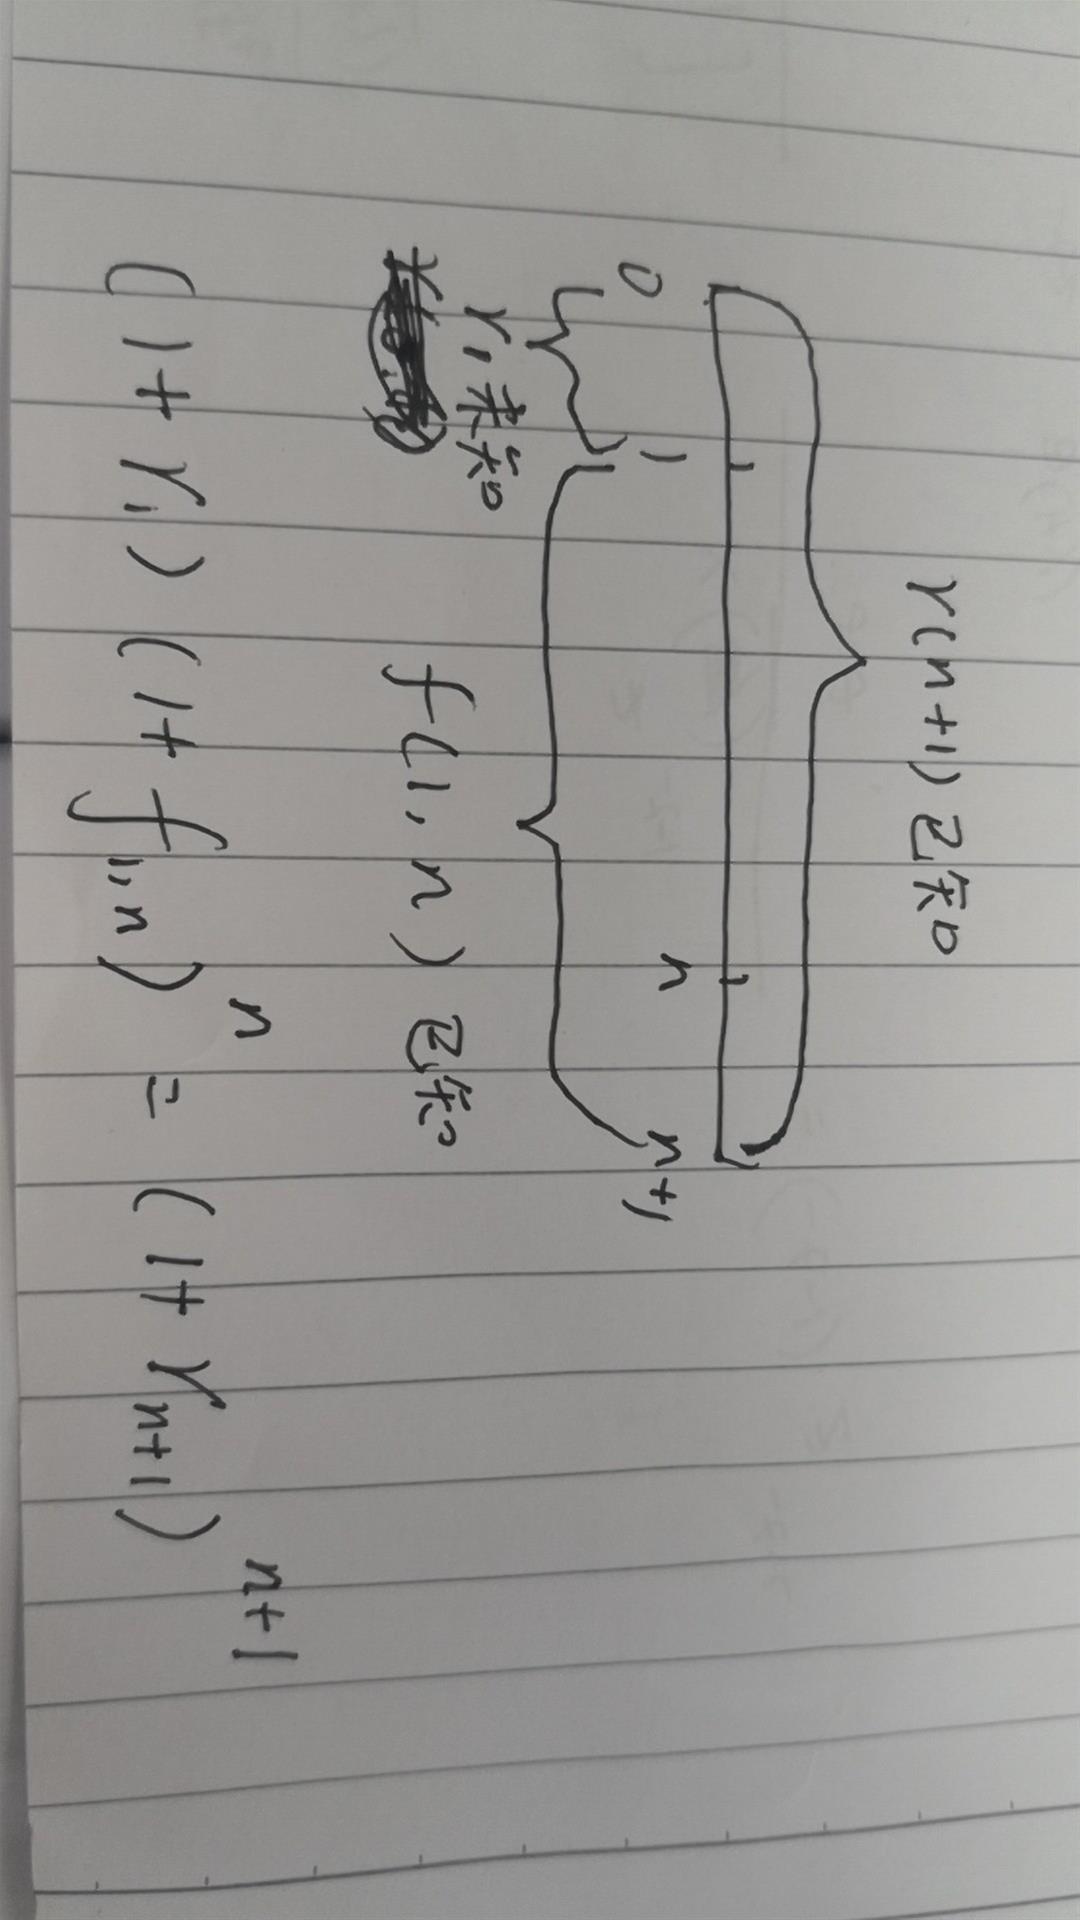 r(n+1) 已知
0 1 n n+1
r₁ 未知 f(1, n) 已知
(1+r₁) (1+f₁,ₙ)ⁿ = (1+rₙ₊₁)ⁿ⁺¹